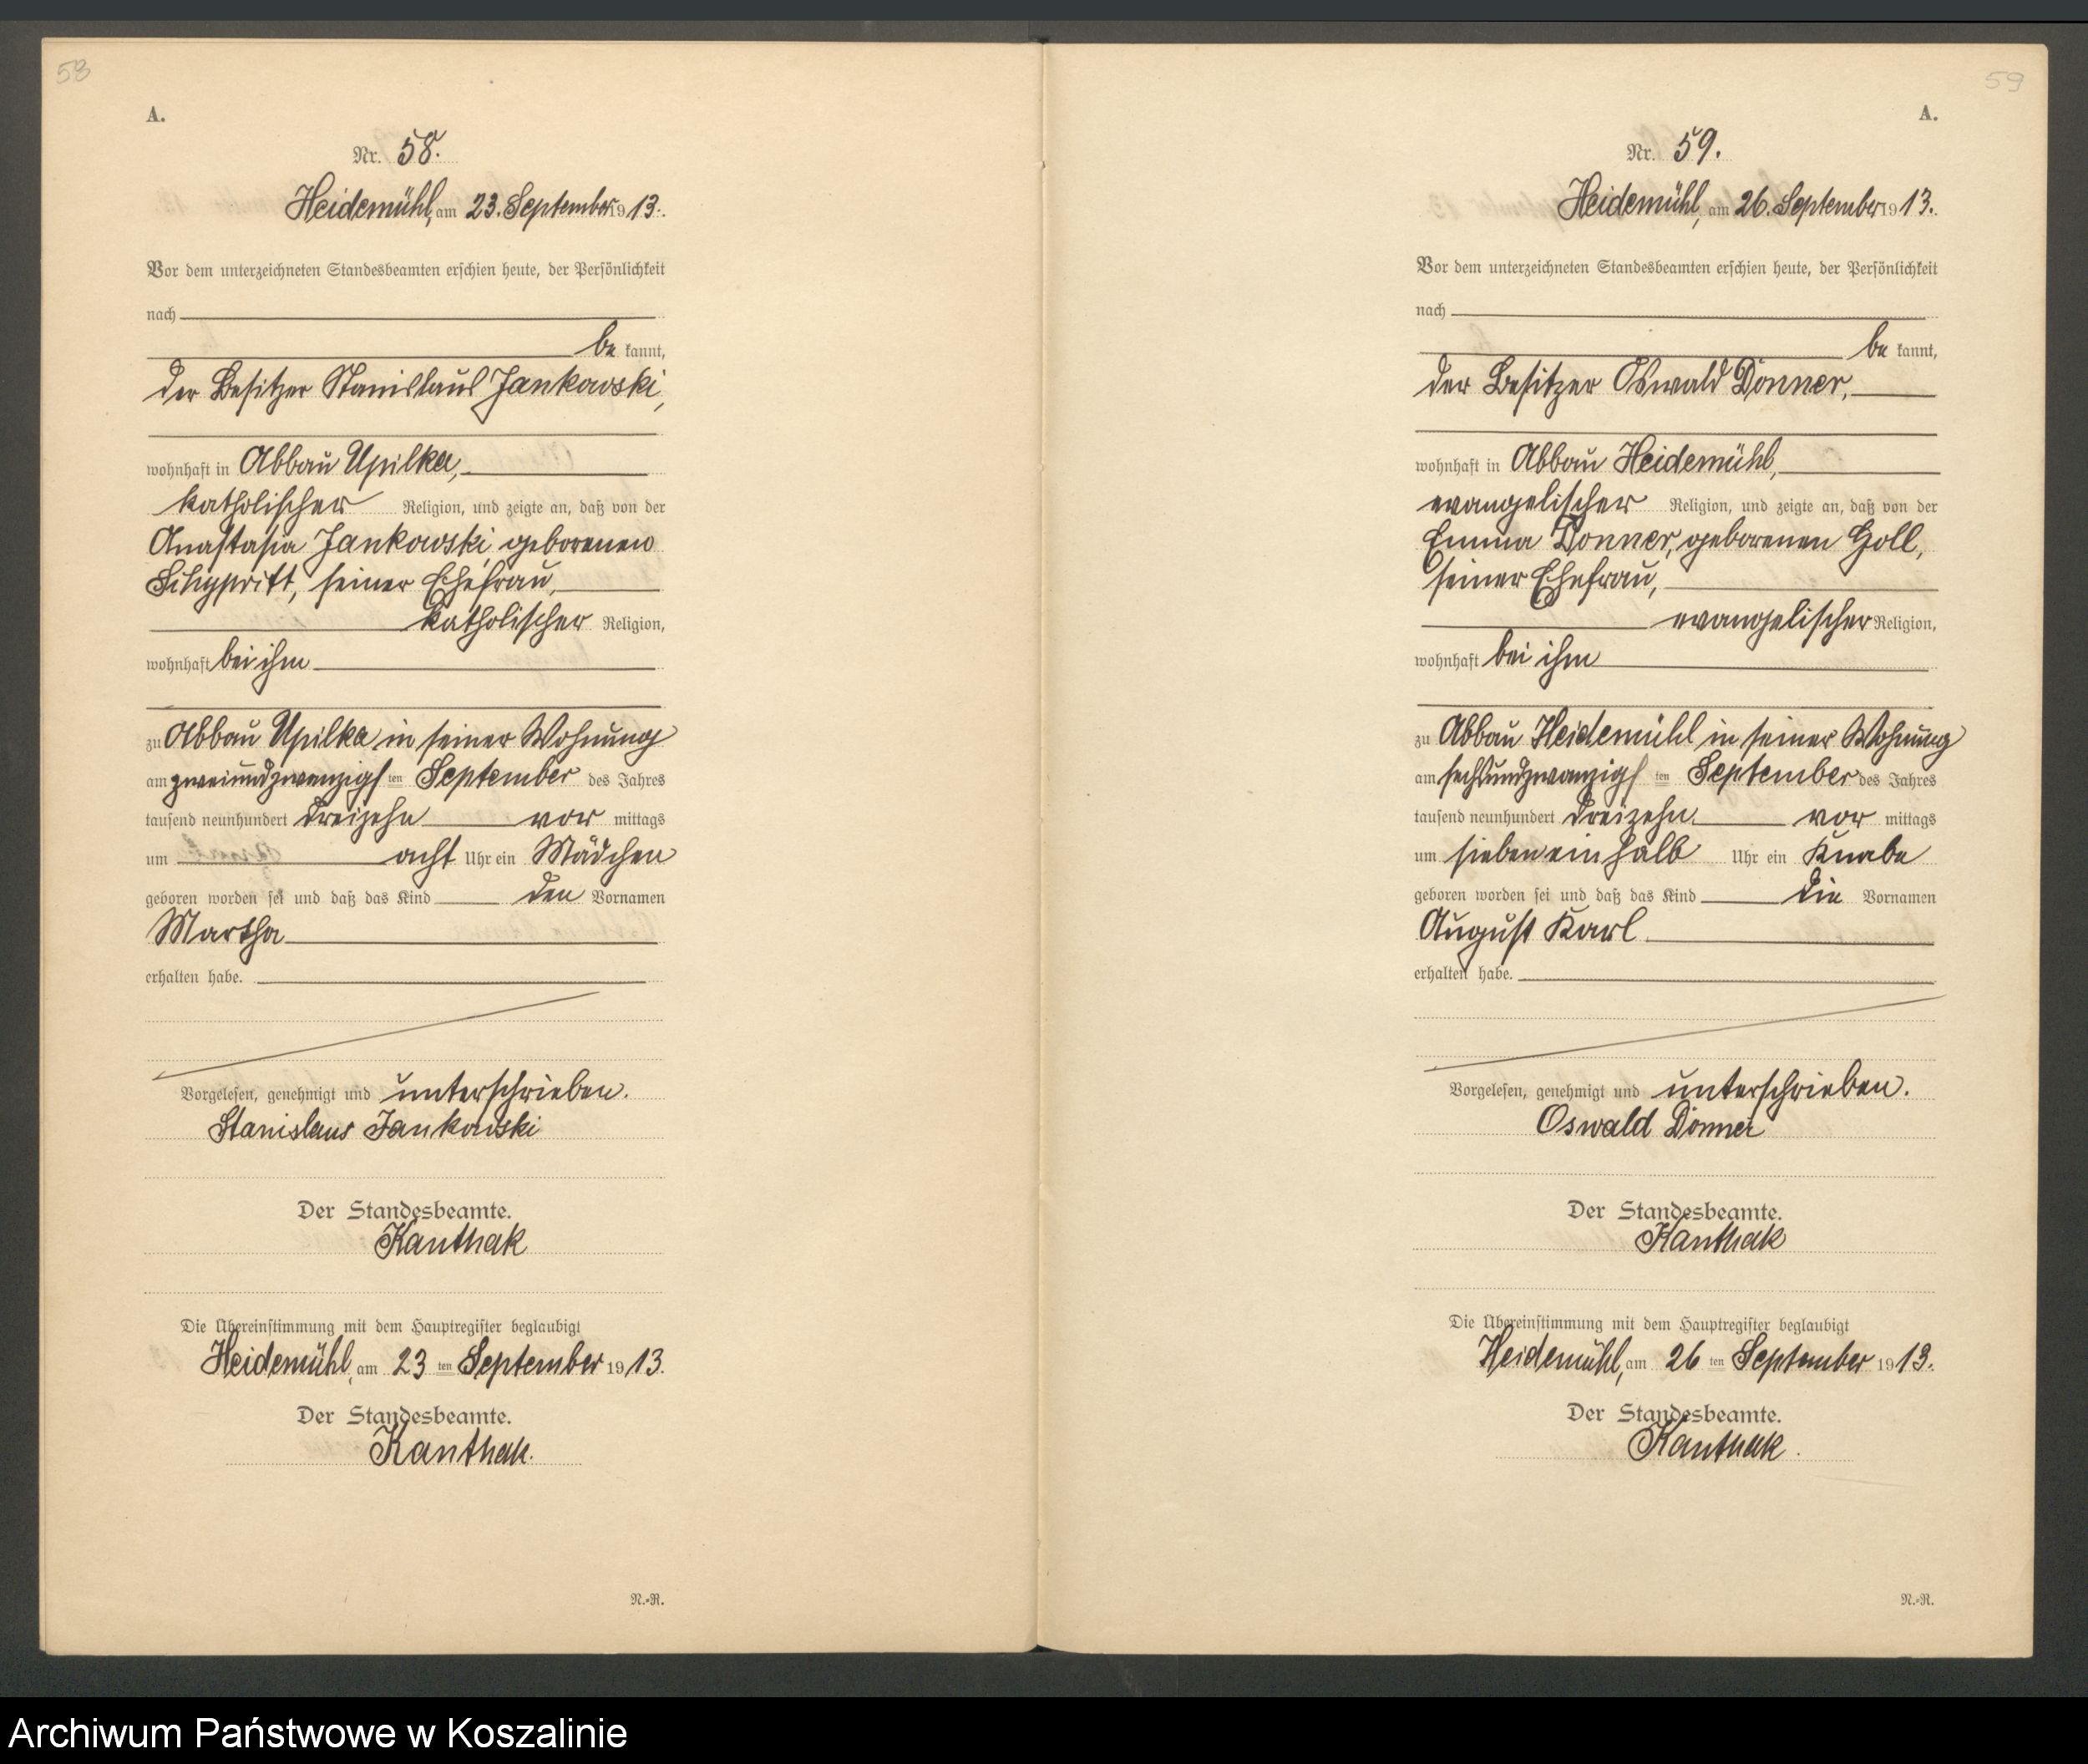 58
A.
Nr. 58.
Heidemühl, am 23. September 1913.
Vor dem unterzeichneten Standesbeamten erschien heute, der Persönlichkeit
nach
be kannt,
der Besitzer Stanislaus Jankowski,
wohnhaft in Abbau Upilka,
katholischer Religion, und zeigte an, daß von der
Anastasia Jankowski geborenen
seiner Ehefrau,
katholischer Religion,
wohnhaft bei ihm
zu Abbau Upilka in seiner Wohnung
am zweiundzwanzigsten September des Jahres
tausend neunhundert dreizehn vor mittags
um acht Uhr ein Mädchen
geboren worden sei und daß das Kind den Vornamen
Martha
erhalten habe.
Vorgelesen, genehmigt und unterschrieben.
Stanislaus Jankowski
Der Standesbeamte.
Kanthak
Die Übereinstimmung mit dem Hauptregister beglaubigt
Heidemühl, am 23 ten September 1913.
Der Standesbeamte.
Kanthak.
N.-R.
59
A.
Nr. 59.
Heidemühl, am 26. September 1913.
Vor dem unterzeichneten Standesbeamten erschien heute, der Persönlichkeit
nach
be kannt,
der Besitzer Oswald Donner,
wohnhaft in Abbau Heidemühl,
evangelischer Religion, und zeigte an, daß von der
Emma Donner, geborenen Goll,
seiner Ehefrau,
evangelischer Religion,
wohnhaft bei ihm
zu Abbau Heidemühl in seiner Wohnung
am sechsundzwanzigsten September des Jahres
tausend neunhundert dreizehn vor mittags
um sieben ein halb Uhr ein Knabe
geboren worden sei und daß das Kind die Vornamen
August Karl
erhalten habe.
Vorgelesen, genehmigt und unterschrieben.
Oswald Donner
Der Standesbeamte.
Kanthak
Die Übereinstimmung mit dem Hauptregister beglaubigt
Heidemühl, am 26 ten September 1913.
Der Standesbeamte.
Kanthak.
N.-R.
Archiwum Państwowe w Koszalinie